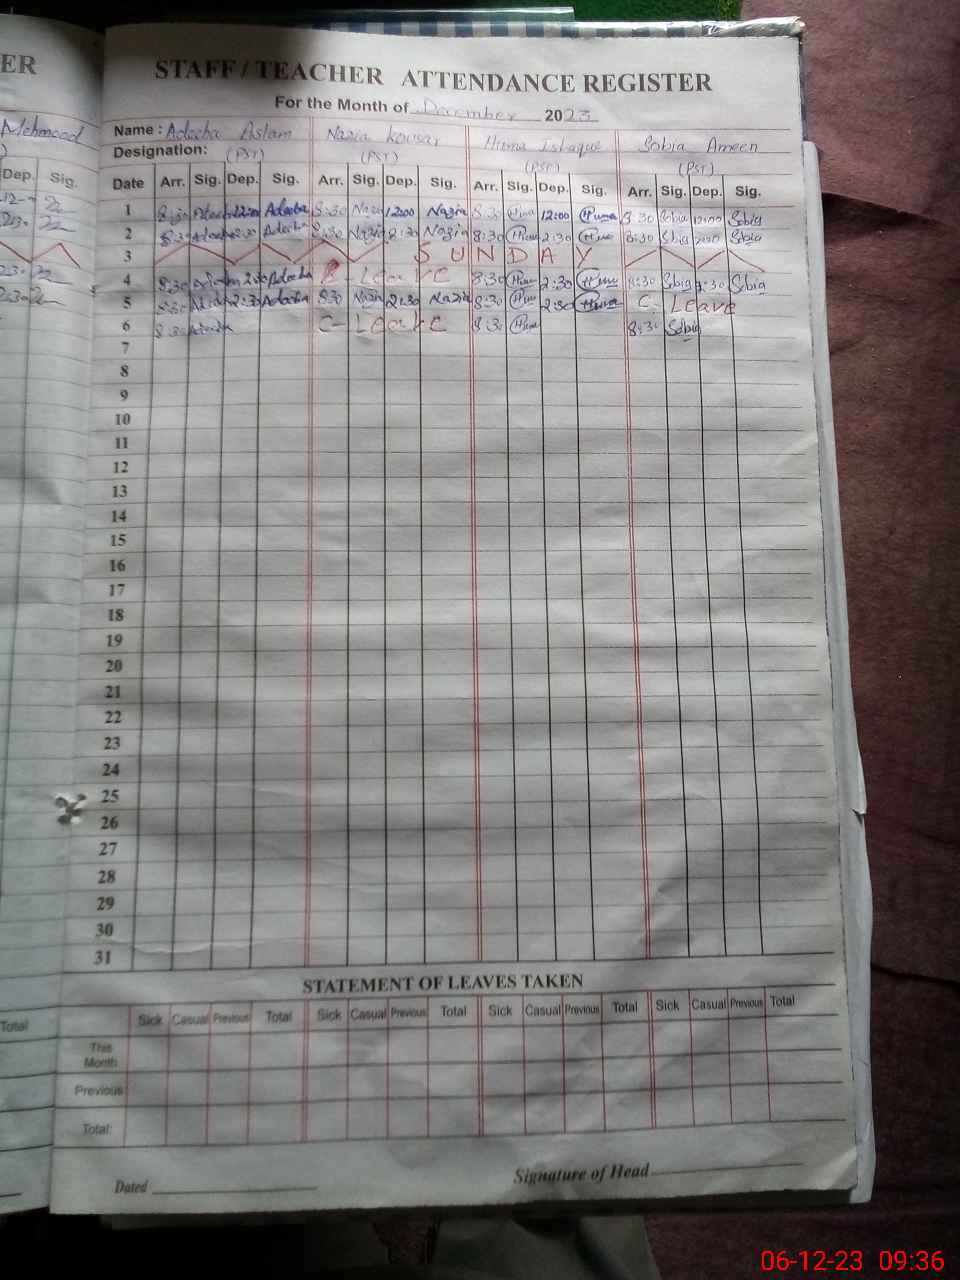 ER
STAFF / TEACHER ATTENDANCE REGISTER
For the Month of December 2023
Mehmood
Name : Adeeba Aslam Nazia Kousar Huma Ishaque Sobia Ameen
Designation: (PST) (PST) (PST) (PST)
Dep. Sig.
Date Arr. Sig. Dep. Sig. Arr. Sig. Dep. Sig. Arr. Sig. Dep. Sig. Arr. Sig. Dep. Sig.
1 8:30 Adeeba 12:00 Adeeba 8:30 Nazia 12:00 Nazia 8:30 Huma 12:00 Huma 8:30 Sobia 12:00 Sobia
2 8:30 Adeeba 2:30 Adeeba 8:30 Nazia 2:30 Nazia 8:30 Huma 2:30 Huma 8:30 Sobia Sobia
3 SUNDAY
4 8:30 Adeeba 2:30 Adeeba Leave 8:30 Huma 2:30 Huma 8:30 Sobia 2:30 Sobia
5 8:30 Adeeba 2:30 Adeeba 8:30 Nazia 2:30 Nazia 8:30 Huma 2:30 Huma C. Leave
6 8:30 Adeeba C- Leave 8:30 Huma 8:30 Sobia
7
8
9
10
11
12
13
14
15
16
17
18
19
20
21
22
23
24
25
26
27
28
29
30
31
STATEMENT OF LEAVES TAKEN
Total
Sick Casual Previous Total Sick Casual Previous Total Sick Casual Previous Total Sick Casual Previous Total
This
Month
Previous
Total
Dated Signature of Head
06-12-23 09:36